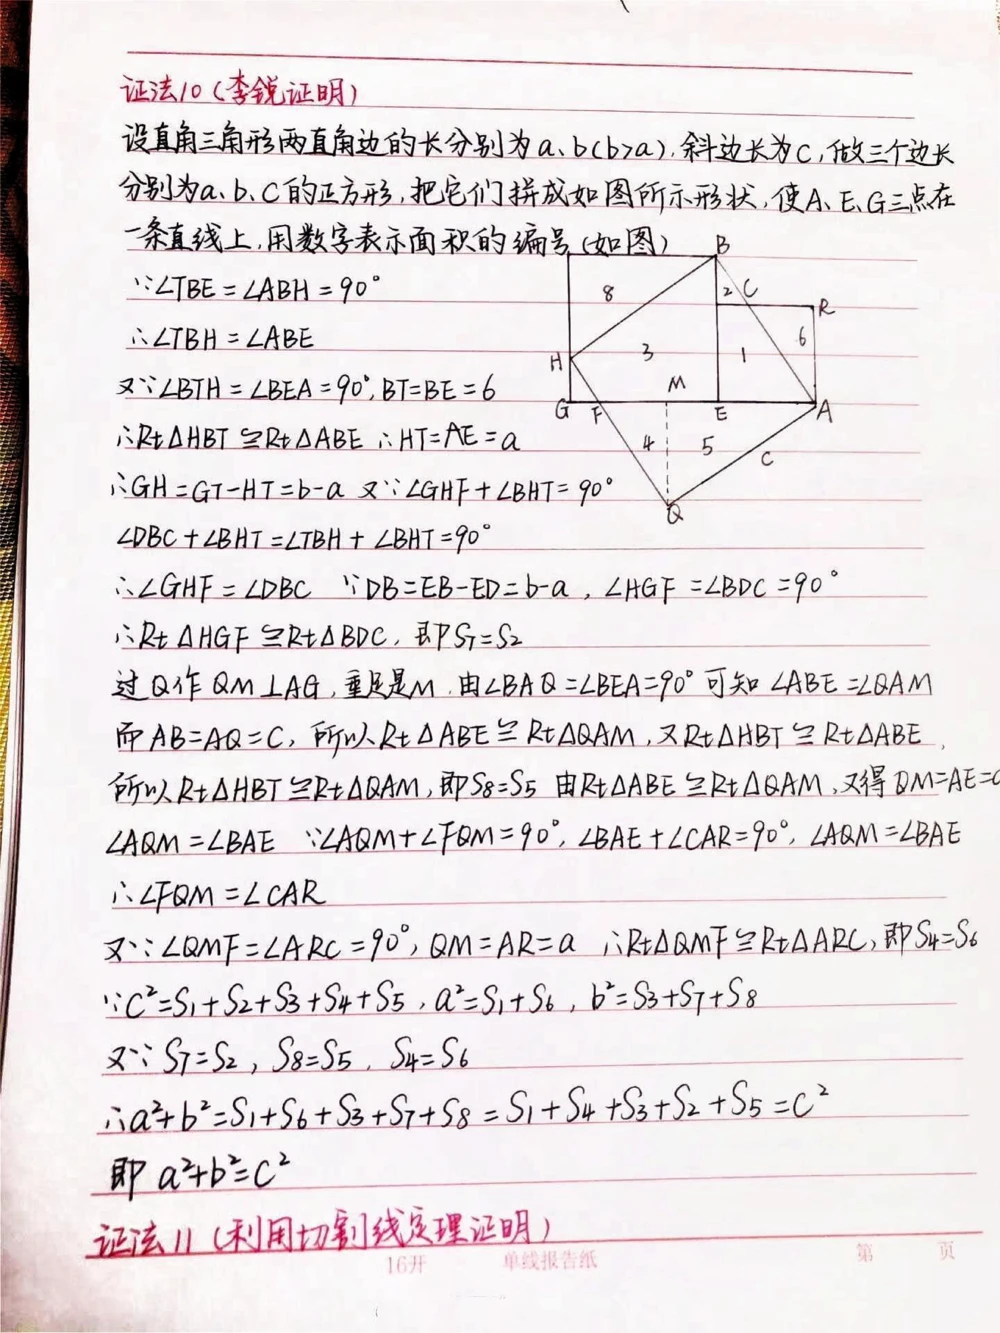 证法10(李锐证明)
设直角三角形两直角边的长分别为a、b(b>a),斜边长为C,做三个边长
分别为a、b、C的正方形,把它们拼成如图所示形状,使A、E、G三点在
一条直线上,用数字表示面积的编号(如图)
B
8
2
C
R
∵∠TBE=∠ABH=90°
∴∠TBH=∠ABE
H
3
1
6
又∵∠BTH=∠BEA=90°,BT=BE=6
M
G
F
E
A
∴Rt△HBT≌Rt△ABE ∴HT=AE=a
4
5
C
∴GH=GT-HT=b-a 又∵∠GHF+∠BHT=90°
Q
∠DBC+∠BHT=∠TBH+∠BHT=90°
∴∠GHF=∠DBC ∵DB=EB-ED=b-a,∠HGF=∠BDC=90°
∴Rt△HGF≌Rt△BDC,即S7=S2
过Q作QM⊥AG,垂足是M,由∠BAQ=∠BEA=90°可知∠ABE=∠QAM
而AB=AQ=C,所以Rt△ABE≌Rt△QAM,又Rt△HBT≌Rt△ABE,
所以Rt△HBT≌Rt△QAM,即S8=S5 由Rt△ABE≌Rt△QAM,又得QM=AE=a
∠AQM=∠BAE ∵∠AQM+∠FQM=90°,∠BAE+∠CAR=90°,∠AQM=∠BAE
∴∠FQM=∠CAR
又∵∠QMF=∠ARC=90°,QM=AR=a ∴Rt△QMF≌Rt△ARC,即S4=S6
∵C²=S1+S2+S3+S4+S5,a²=S1+S6,b²=S3+S7+S8
又∵S7=S2,S8=S5,S4=S6
∴a²+b²=S1+S6+S3+S7+S8=S1+S4+S3+S2+S5=C²
即a²+b²=C²
证法11(利用切割线定理证明)
16开 单线报告纸 第 页